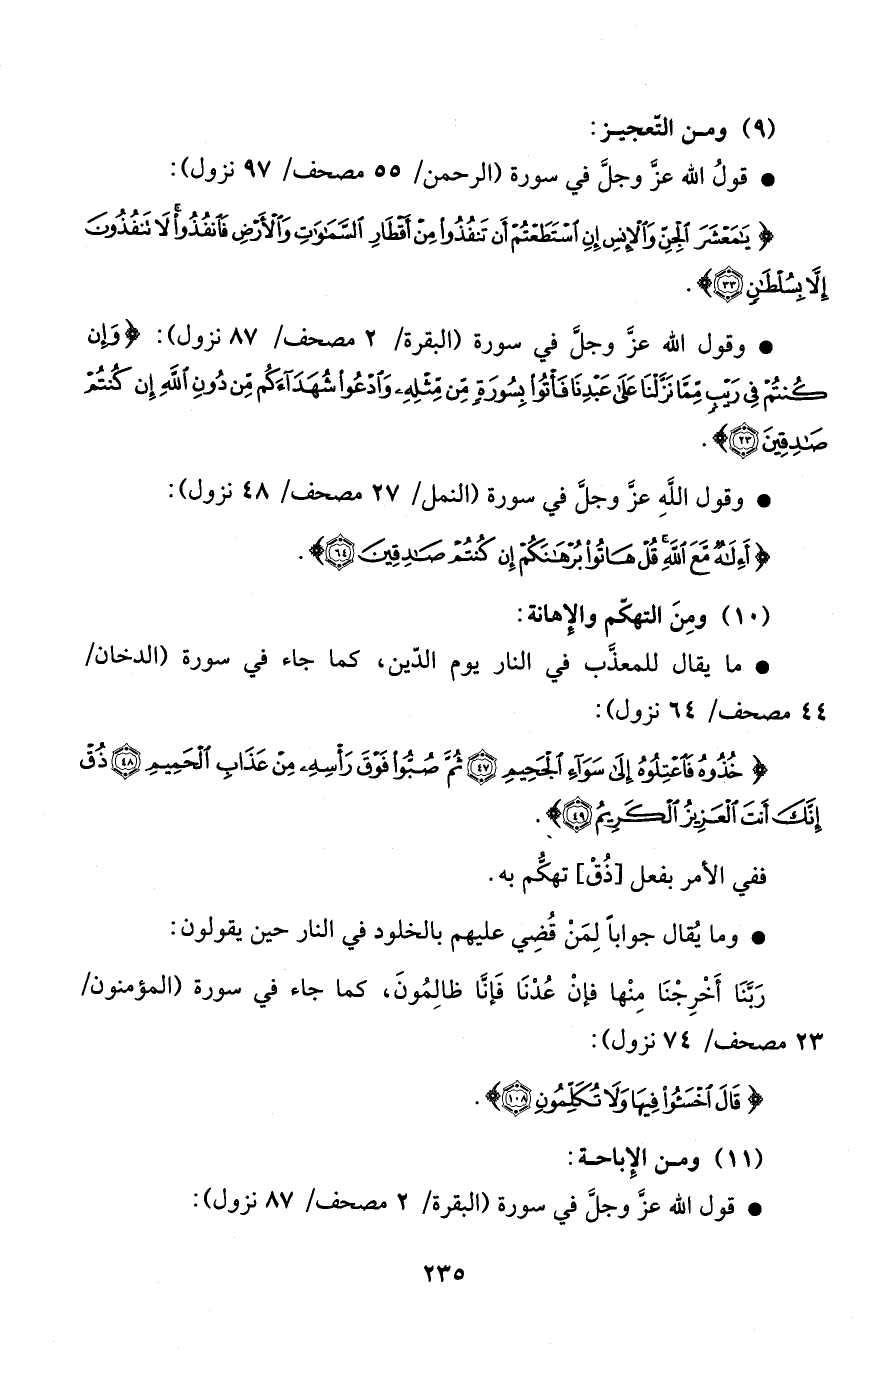 (٩) ومـن التّعجيـز:
● قولُ الله عزَّ وجلَّ في سورة (الرحمن/ ٥٥ مصحف/ ٩٧ نزول):
﴿ يَٰمَعْشَرَ ٱلْجِنِّ وَٱلْإِنسِ إِنِ ٱسْتَطَعْتُمْ أَن تَنفُذُوا۟ مِنْ أَقْطَارِ ٱلسَّمَٰوَٰتِ وَٱلْأَرْضِ فَٱنفُذُوا۟ۚ لَا تَنفُذُونَ
إِلَّا بِسُلْطَٰنٍ ۝٣٣﴾.
● وقول الله عزَّ وجلَّ في سورة (البقرة/ ٢ مصحف/ ٨٧ نزول): ﴿ وَإِن
كُنتُمْ فِى رَيْبٍ مِّمَّا نَزَّلْنَا عَلَىٰ عَبْدِنَا فَأْتُوا۟ بِسُورَةٍ مِّن مِّثْلِهِۦ وَٱدْعُوا۟ شُهَدَآءَكُم مِّن دُونِ ٱللَّهِ إِن كُنتُمْ
صَٰدِقِينَ ۝٢٣﴾.
● وقول اللَّهِ عزَّ وجلَّ في سورة (النمل/ ٢٧ مصحف/ ٤٨ نزول):
﴿ أَءِلَٰهٌ مَّعَ ٱللَّهِۚ قُلْ هَاتُوا۟ بُرْهَٰنَكُمْ إِن كُنتُمْ صَٰدِقِينَ ۝٦٤﴾.
(١٠) ومِنَ التهكّم والإِهانة:
● ما يقال للمعذَّب في النار يوم الدّين، كما جاء في سورة (الدخان/
٤٤ مصحف/ ٦٤ نزول):
﴿ خُذُوهُ فَٱعْتِلُوهُ إِلَىٰ سَوَآءِ ٱلْجَحِيمِ ۝٤٧ ثُمَّ صُبُّوا۟ فَوْقَ رَأْسِهِۦ مِنْ عَذَابِ ٱلْحَمِيمِ ۝٤٨ ذُقْ
إِنَّكَ أَنتَ ٱلْعَزِيزُ ٱلْكَرِيمُ ۝٤٩﴾.
ففي الأمر بفعل [ذُقْ] تهكُّم به.
● وما يُقال جواباً لِمَنْ قُضِي عليهم بالخلود في النار حين يقولون:
رَبَّنَا أَخْرِجْنَا مِنْها فإنْ عُدْنَا فَإِنَّا ظالِمُونَ، كما جاء في سورة (المؤمنون/
٢٣ مصحف/ ٧٤ نزول):
﴿ قَالَ ٱخْسَـُٔوا۟ فِيهَا وَلَا تُكَلِّمُونِ ۝١٠٨﴾.
(١١) ومـن الإِباحـة:
● قول الله عزَّ وجلَّ في سورة (البقرة/ ٢ مصحف/ ٨٧ نزول):
٢٣٥